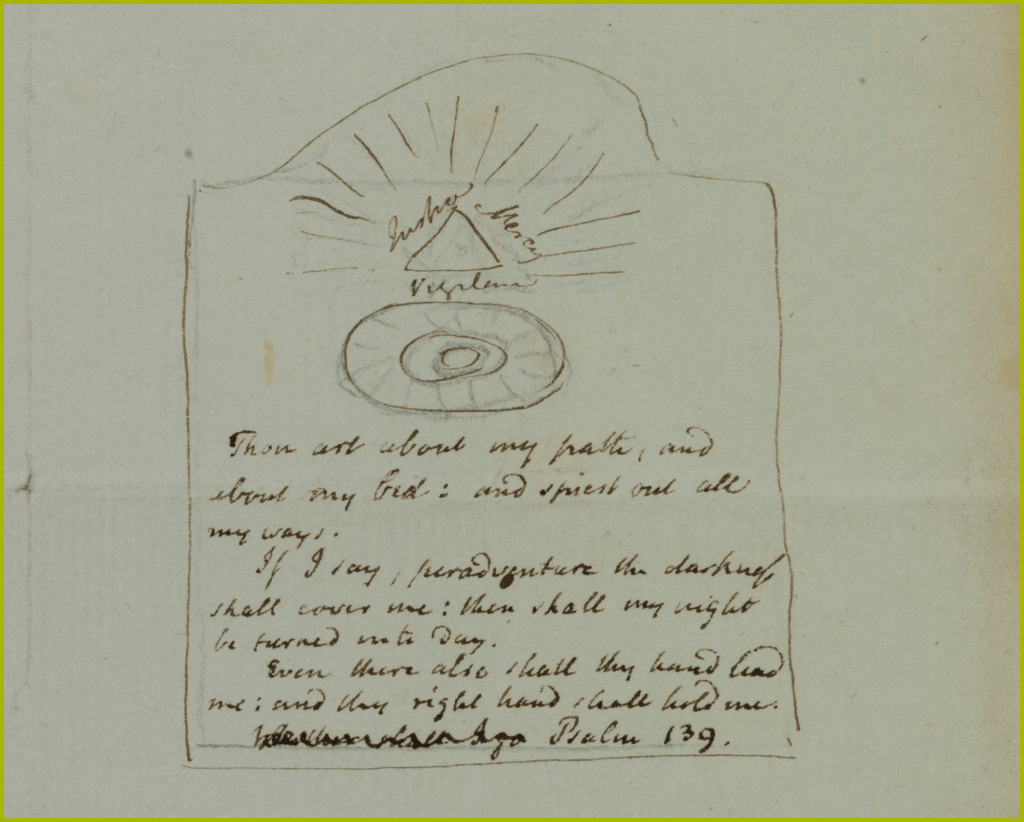 Justice
Mercy
Vigilance
Thou art about my path, and
about my bed: and spiest out all
my ways.
If I say, peradventure the darkness
shall cover me: then shall my night
be turned into Day.
Even there also shall thy hand lead
me: and thy right hand shall hold me.
I go Psalm 139.